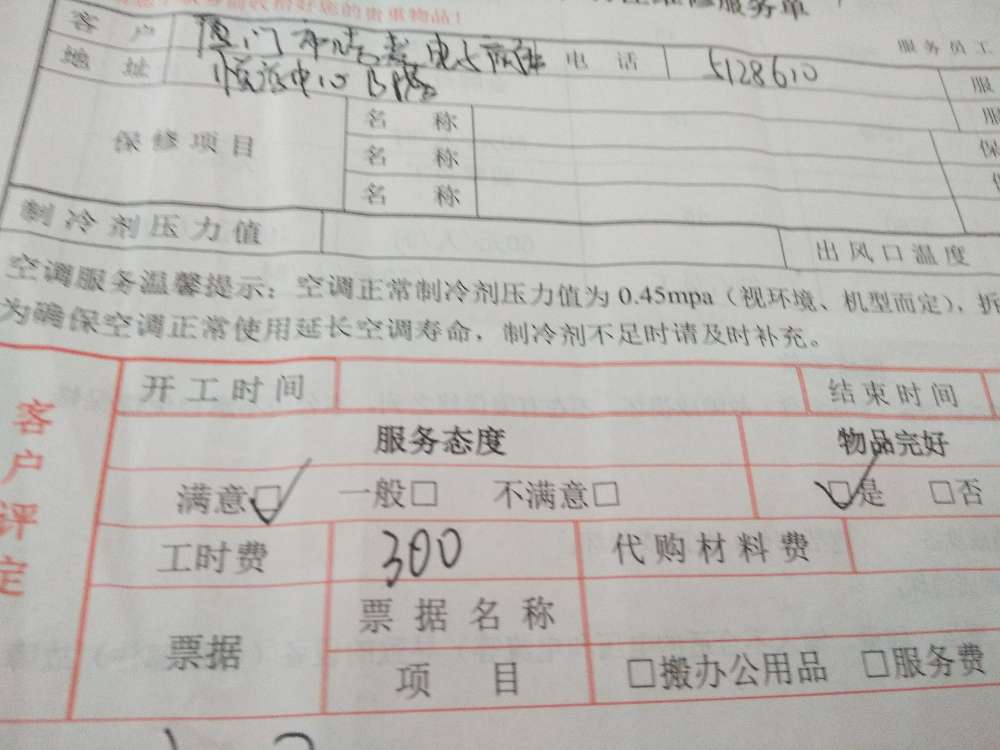 收拾好您的贵重物品！
维修服务单
服务员工
客户 厦门市 电话 5128610
地址 中心B 服
保修项目 名称
名称
名称
制冷剂压力值 出风口温度
空调服务温馨提示：空调正常制冷剂压力值为0.45mpa（视环境、机型而定），拆
为确保空调正常使用延长空调寿命，制冷剂不足时请及时补充。
客户评定
开工时间 结束时间
服务态度 物品完好
满意□ 一般□ 不满意□ □是 □否
工时费 300 代购材料费
票据 票据名称
项目 □搬办公用品 □服务费